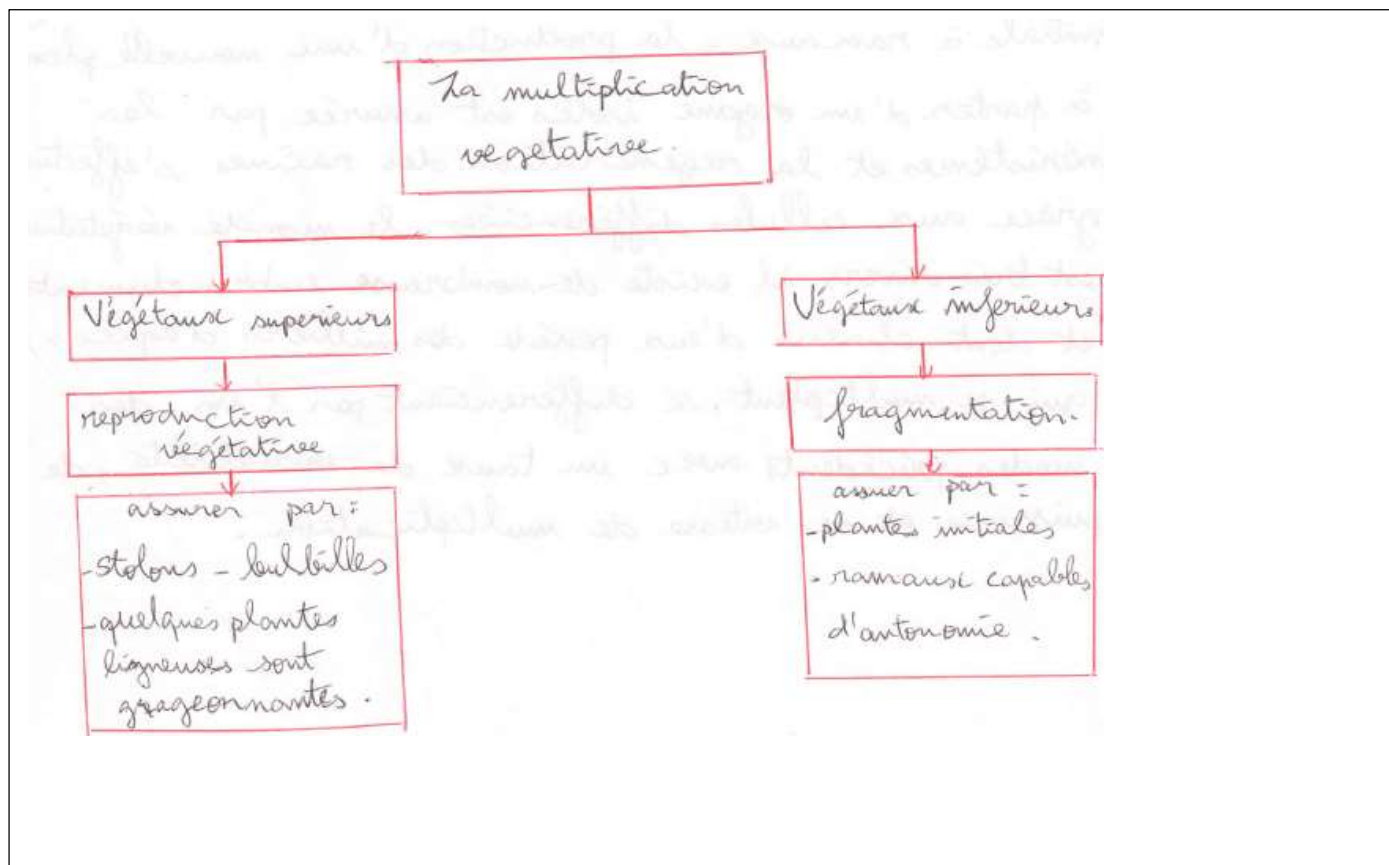 La multiplication
vegetative.
Végétaux superieurs
reproduction
végétative
assurer par:
-stolons - bulbilles
-quelques plantes
ligneuses sont
Végétaux inferieurs
fragmentation.
assuer par =
-plantes initiales
- ramaux capables
d'autonomie.